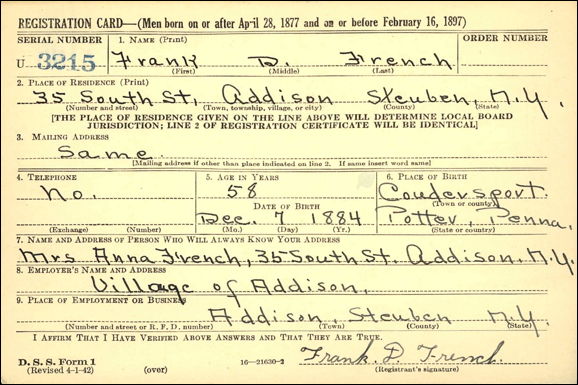 REGISTRATION CARD—(Men born on or after April 28, 1877 and on or before February 16, 1897)
SERIAL NUMBER 1. NAME (Print) ORDER NUMBER
U 3215 Frank D. French
(First) (Middle) (Last)
2. PLACE OF RESIDENCE (Print)
35 South St, Addison Steuben, N.Y.
(Number and street) (Town, township, village, or city) (County) (State)
[THE PLACE OF RESIDENCE GIVEN ON THE LINE ABOVE WILL DETERMINE LOCAL BOARD
JURISDICTION; LINE 2 OF REGISTRATION CERTIFICATE WILL BE IDENTICAL]
3. MAILING ADDRESS
Same.
[Mailing address if other than place indicated on line 2. If same insert word same]
4. TELEPHONE 5. AGE IN YEARS 6. PLACE OF BIRTH
No. 58 Coudersport.
(Town or county)
DATE OF BIRTH
Dec. 7 1884 Potter, Penna.
(Exchange) (Number) (Mo.) (Day) (Yr.) (State or country)
7. NAME AND ADDRESS OF PERSON WHO WILL ALWAYS KNOW YOUR ADDRESS
Mrs Anna French, 35 South St. Addison, N.Y.
8. EMPLOYER'S NAME AND ADDRESS
Village of Addison.
9. PLACE OF EMPLOYMENT OR BUSINESS
Addison, Steuben N.Y.
(Number and street or R. F. D. number) (Town) (County) (State)
I AFFIRM THAT I HAVE VERIFIED ABOVE ANSWERS AND THAT THEY ARE TRUE.
D. S. S. Form 1
(Revised 4-1-42) (over) 16—21630-2 Frank. D. French.
(Registrant's signature)